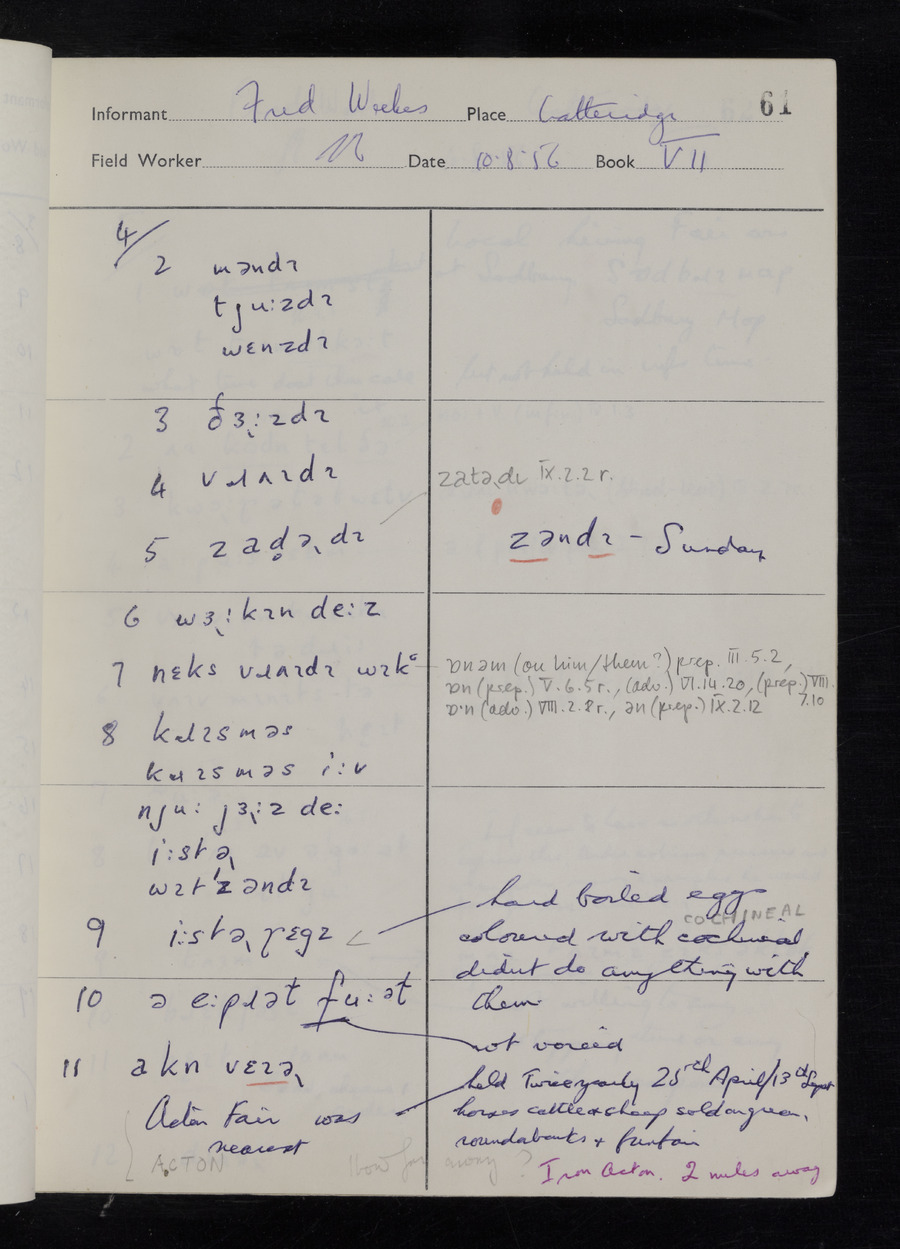 61
Informant Fred Weekes Place Gatteridge
Field Worker Date 10.8.56 Book VII
4/
2 məndɪ
tju:zdɪ
wɛnzdɪ
3 ðɜ˞:zdɪ
4 vɹʌɪdɪ
zatə˞dɪ IX.2.2 r.
5 zad̥ə˞dɪ
zəndɪ – Sunday
6 wɜ˞:kɪn de:z
7 nɛks vɹʌɪdɪ wɪk
ɒnəm (on him/them?) prep. III.5.2,
ɒn (prep.) V.6.5 r., (adv.) VI.14.20, (prep.) VIII.
7.10
ɒ·n (adv.) VIII.2.8 r., ən (prep.) IX.2.12
8 kɹɪsməs
kɹɪsməs i:v
nju: jɜ˞:z de:
i:stə˞
wɪt'zəndɪ
9 i:stə˞ɽɛgz
hard boiled eggs
COCHINEAL
coloured with cochineal
didnt do anything with
them.
10 ə e:pɹət fu:ət
not voiced
11 akn vɛɪə˞
held Twice yearly 25th April/13th Sept
Acton Fair was
nearest
horses cattle & sheep sold on green,
roundabouts + funfair
ACTON
How far away?
Iron Acton. 2 miles away